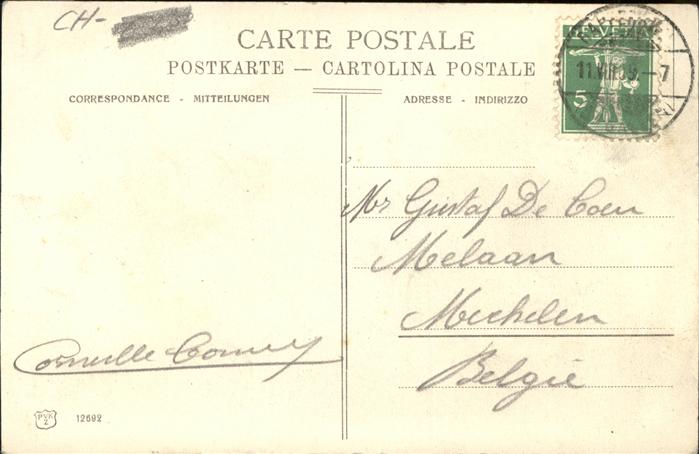 CH-
CARTE POSTALE
POSTKARTE — CARTOLINA POSTALE
CORRESPONDANCE - MITTEILUNGEN
ADRESSE - INDIRIZZO
HELVETIA
5
11.VIII.09.-7
Mr Gustaf De Coen
Melaan
Mechelen
België
Corneille
PVK
Z
12692